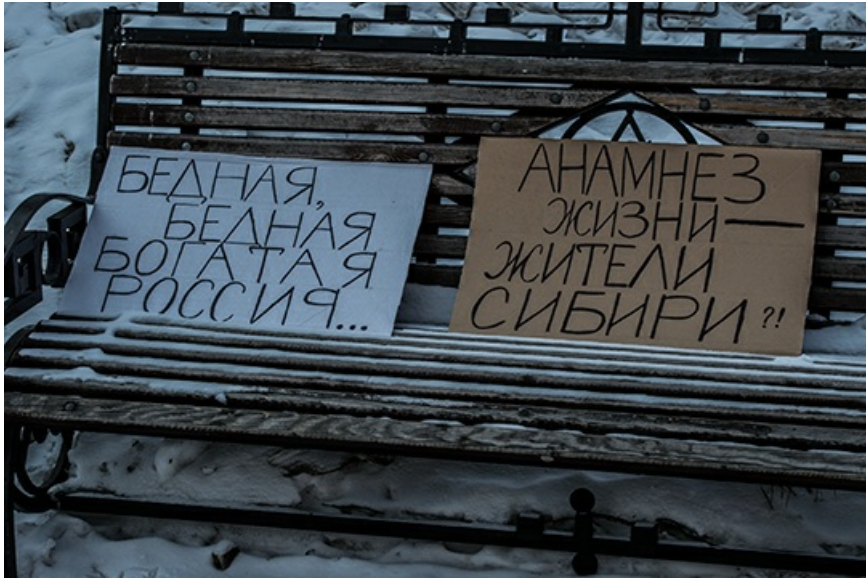 БЕДНАЯ,
БЕДНАЯ
БОГАТАЯ
РОССИЯ...
АНАМНЕЗ
ЖИЗНИ —
ЖИТЕЛИ
СИБИРИ ?!